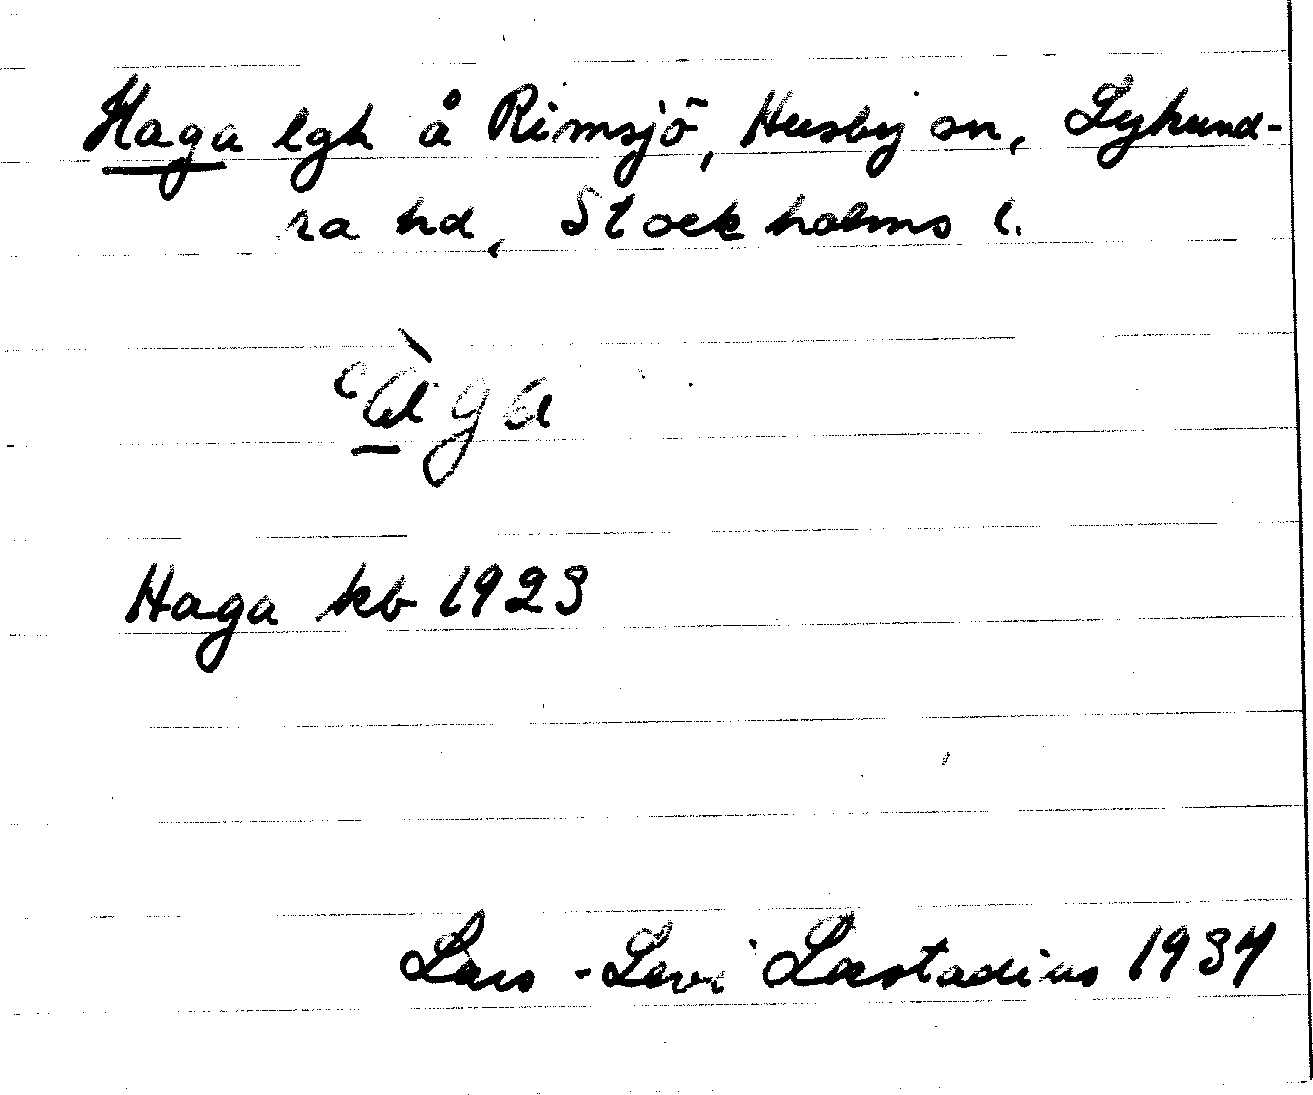 Haga lgh å Rimsjö, Husby sn, Lyhund-
ra hd, Stockholms l.
ʽàga
Haga kb 1923
Lars-Levi Læstadius 1934